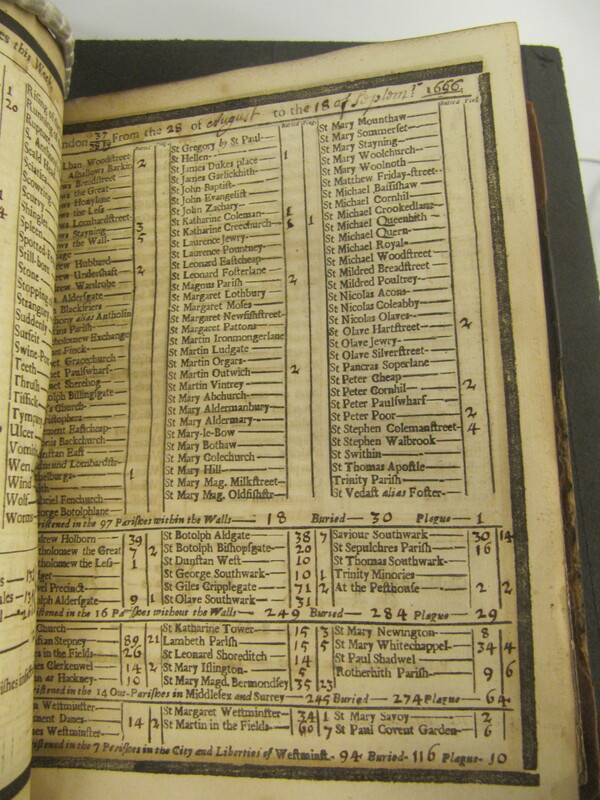 es this Week
London 37 From the 28 of August to the 18 of Septemr 1666
Buried Plag.
Buried Plag.
Buried Plag.
lban Woodstreet
Alhallows Barkin 2
ws Breadstreet
ws the Great
ws Honylane
ws the Less
ws Lombardstreet
ws Stayning 3
ws the Wall 5
rew Hubbard
rew Undershaft 2
rew Wardrobe
Aldersgate
Blackfriers
hony alias Antholin
ins Parish
tholomew Exchange
et Finck
et Gracechurch
et Paulswharf
et Sherehog
olph Billingsgate
s Church
istophers
ement Eastcheap
onis Backchurch
nstan East
dmund Lombardstr
helburga 1
ith
briel Fenchurch
orge Botolphlane
St Gregory by St Paul
St Hellen 1
St James Dukes place
St James Garlickhith
St John Baptist
St John Evangelist
St John Zachary
St Katharine Coleman 1
St Katharine Creechurch 1
St Laurence Jewry
St Laurence Pountney
St Leonard Eastcheap
St Leonard Fosterlane
St Magnus Parish 2
St Margaret Lothbury
St Margaret Moses
St Margaret Newfishstreet
St Margaret Pattons
St Martin Ironmongerlane
St Martin Ludgate
St Martin Orgars
St Martin Outwich 2
St Martin Vintrey
St Mary Abchurch
St Mary Aldermanbury
St Mary Aldermary
St Mary-le-Bow
St Mary Bothaw
St Mary Colechurch
St Mary Hill
St Mary Mag. Milkstreet
St Mary Mag. Oldfishstr
St Mary Mounthaw
St Mary Sommerset
St Mary Stayning
St Mary Woolchurch
St Mary Woolnoth
St Matthew Friday-street
St Michael Bassishaw
St Michael Cornhil
St Michael Crookedlane
St Michael Queenhith
St Michael Quern
St Michael Royal
St Michael Woodstreet
St Mildred Breadstreet
St Mildred Poultrey
St Nicolas Acons
St Nicolas Coleabby
St Nicolas Olaves
St Olave Hartstreet 2
St Olave Jewry
St Olave Silverstreet
St Pancras Soperlane
St Peter Cheap
St Peter Cornhil 2
St Peter Paulswharf
St Peter Poor 2
St Stephen Colemanstreet 4
St Stephen Walbrook
St Swithin
St Thomas Apostle
Trinity Parish
St Vedast alias Foster
istened in the 97 Parishes within the Walls 18 Buried 30 Plague 1
drew Holborn 39
tholomew the Great 7 2
tholomew the Less 1
get
wel Precinct
olph Aldersgate 9 1
St Botolph Aldgate 38 7
St Botolph Bishopsgate 20
St Dunstan West 10
St George Southwark 10 1
St Giles Cripplegate 71 2
St Olave Southwark 31
Saviour Southwark 30 14
St Sepulchres Parish 16
St Thomas Southwark
Trinity Minories
At the Pesthouse 2 2
istened in the 16 Parishes without the Walls 249 Buried 284 Plague 29
Church
han Stepney 89 21
es in the Fields 26
es Clerkenwel 14 2
n at Hackney 10
St Katharine Tower 15 3
Lambeth Parish 15 5
St Leonard Shoreditch 14
St Mary Islington 5
St Mary Magd. Bermondsey 35 23
St Mary Newington 8
St Mary Whitechappel 34 4
St Paul Shadwel
Rotherhith Parish 9 6
ristened in the 14 Out-Parishes in Middlesex and Surrey 245 Buried 274 Plague 64
n Westminster
ment Danes 14 2
nes Westminster
St Margaret Westminster 34 1
St Martin in the Fields 60 7
St Mary Savoy 2
St Paul Covent Garden 6
istened in the 7 Parishes in the City and Liberties of Westminst. 94 Buried 116 Plague 10
Scurvy
Shingles
Spleen
Stone
Stopping
Suddenly
Surfeit
Teeth
Thrush
Tissick
Tympany
Ulcer
Wen
Wind
Wolf
Worms